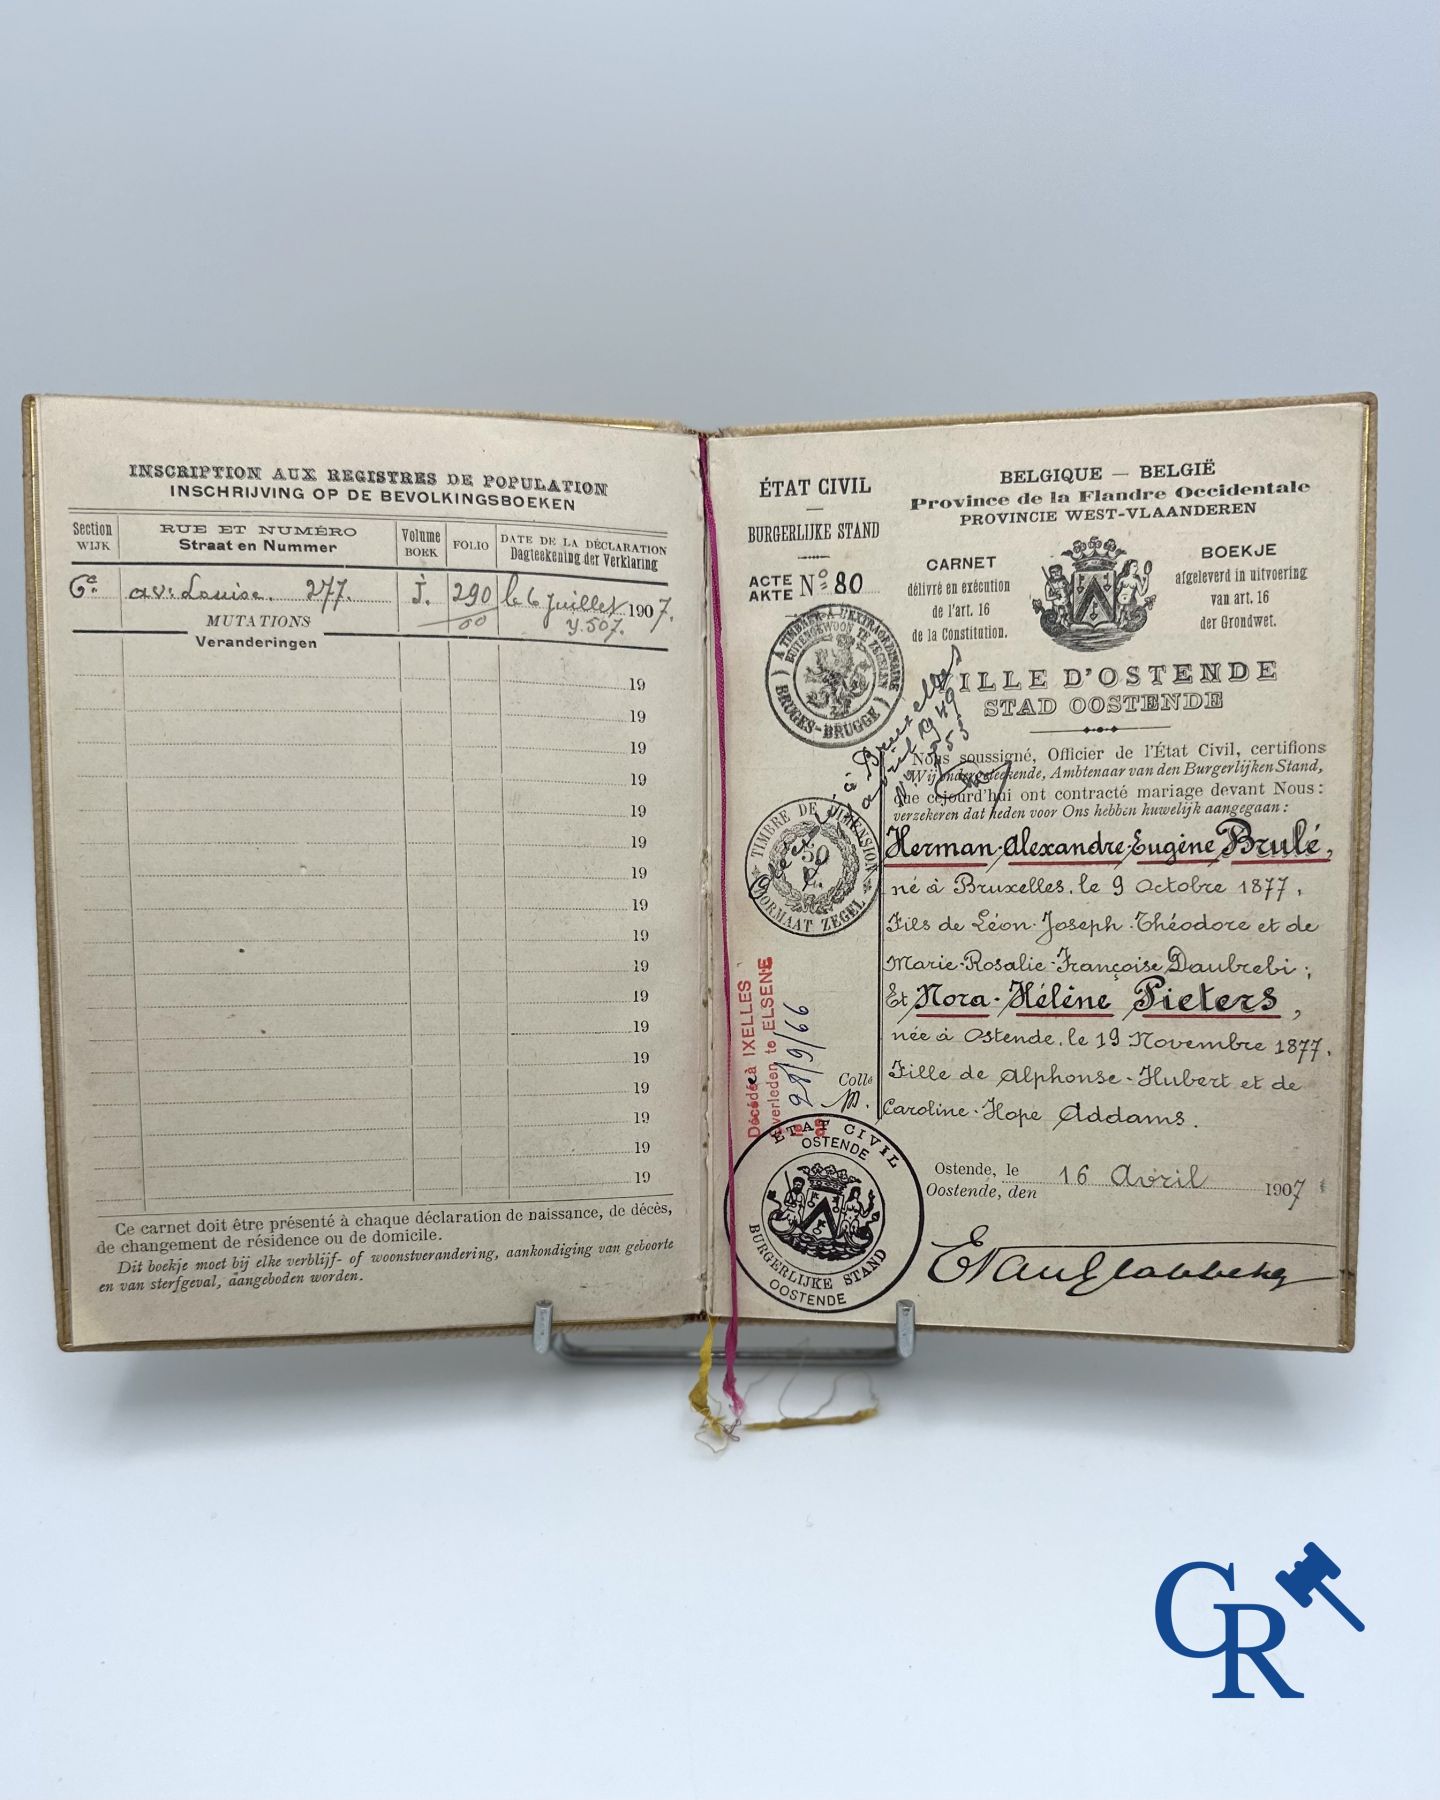 INSCRIPTION AUX REGISTRES DE POPULATION
INSCHRIJVING OP DE BEVOLKINGSBOEKEN
Section
WIJK
RUE ET NUMÉRO
Straat en Nummer
Volume
BOEK
FOLIO
DATE DE LA DÉCLARATION
Dagteekening der Verklaring
6e. av: Louise. 277. J. 290 le 6 Juillet 1907.
60 y. 507.
MUTATIONS
Veranderingen
19
19
19
19
19
19
19
19
19
19
19
19
19
19
19
19
19
Ce carnet doit être présenté à chaque déclaration de naissance, de décès,
de changement de résidence ou de domicile.
Dit boekje moet bij elke verblijf- of woonstverandering, aankondiging van geboorte
en van sterfgeval, aangeboden worden.
ÉTAT CIVIL
BURGERLIJKE STAND
ACTE
AKTE
No 80
BELGIQUE — BELGIË
Province de la Flandre Occidentale
PROVINCIE WEST-VLAANDEREN
CARNET
délivré en exécution
de l'art. 16
de la Constitution.
BOEKJE
afgeleverd in uitvoering
van art. 16
der Grondwet.
A TIMBRER A L'EXTRAORDINAIRE
BUITENGEWOON TE ZEGELEN
BRUGES-BRUGGE
VILLE D'OSTENDE
STAD OOSTENDE
à Bruxelles
avril 1949
Nous soussigné, Officier de l'État Civil, certifions
Wij ondergeteekende, Ambtenaar van den Burgerlijken Stand,
que cejourd'hui ont contracté mariage devant Nous:
verzekeren dat heden voor Ons hebben huwelijk aangegaan:
TIMBRE DE DIMENSION
50
FORMAAT ZEGEL
Herman-Alexandre-Eugène Brulé,
né à Bruxelles, le 9 Octobre 1877,
Fils de Léon-Joseph-Théodore et de
Marie-Rosalie-Françoise Daubrebi;
Et Nora-Hélène Pieters,
née à Ostende, le 19 Novembre 1877,
Fille de Alphonse-Hubert et de
Caroline-Hope Addams.
Décédée à IXELLES
Overleden te ELSENE
le
de
28/9/66
Collé
ÉTAT CIVIL
OSTENDE
BURGERLIJKE STAND
OOSTENDE
Ostende, le
Oostende, den
16 Avril 1907
CR